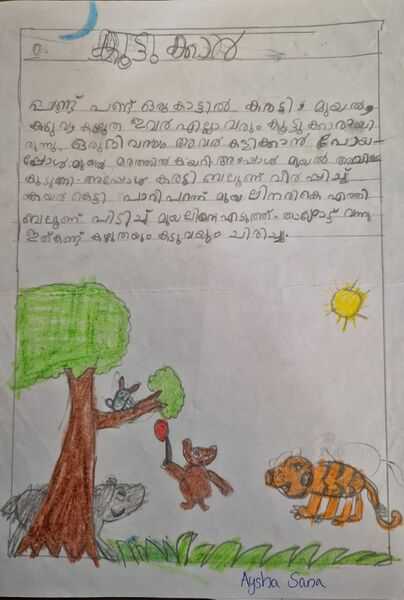 കൂട്ടുക്കാർ
പണ്ട് പണ്ട് ഒരു കാട്ടിൽ കരടി, മുയൽ,
കടുവ, കഴുത ഇവർ എല്ലാവരും കൂട്ടുക്കാരായി
രുന്നു. ഒരു ദിവസം അവർ കളിക്കാൻ പോയ
പ്പോൾ മുയൽ മരത്തിൽ കയറി അപ്പോൾ മുയൽ അവിടെ
കുടുങ്ങി. അപ്പോൾ കരടി ബലൂണ് വീർപ്പിച്ച്
കയർ കെട്ടി പാറി പറന്ന് മുയലിനരികെ എത്തി
ബലൂണ് പിടിച്ച് മുയലിനെ എടുത്ത് താഴോട്ട് വന്നു
ഇത് കണ്ട് കഴുതയും കടുവയും ചിരിച്ചു.
Aysha Sana